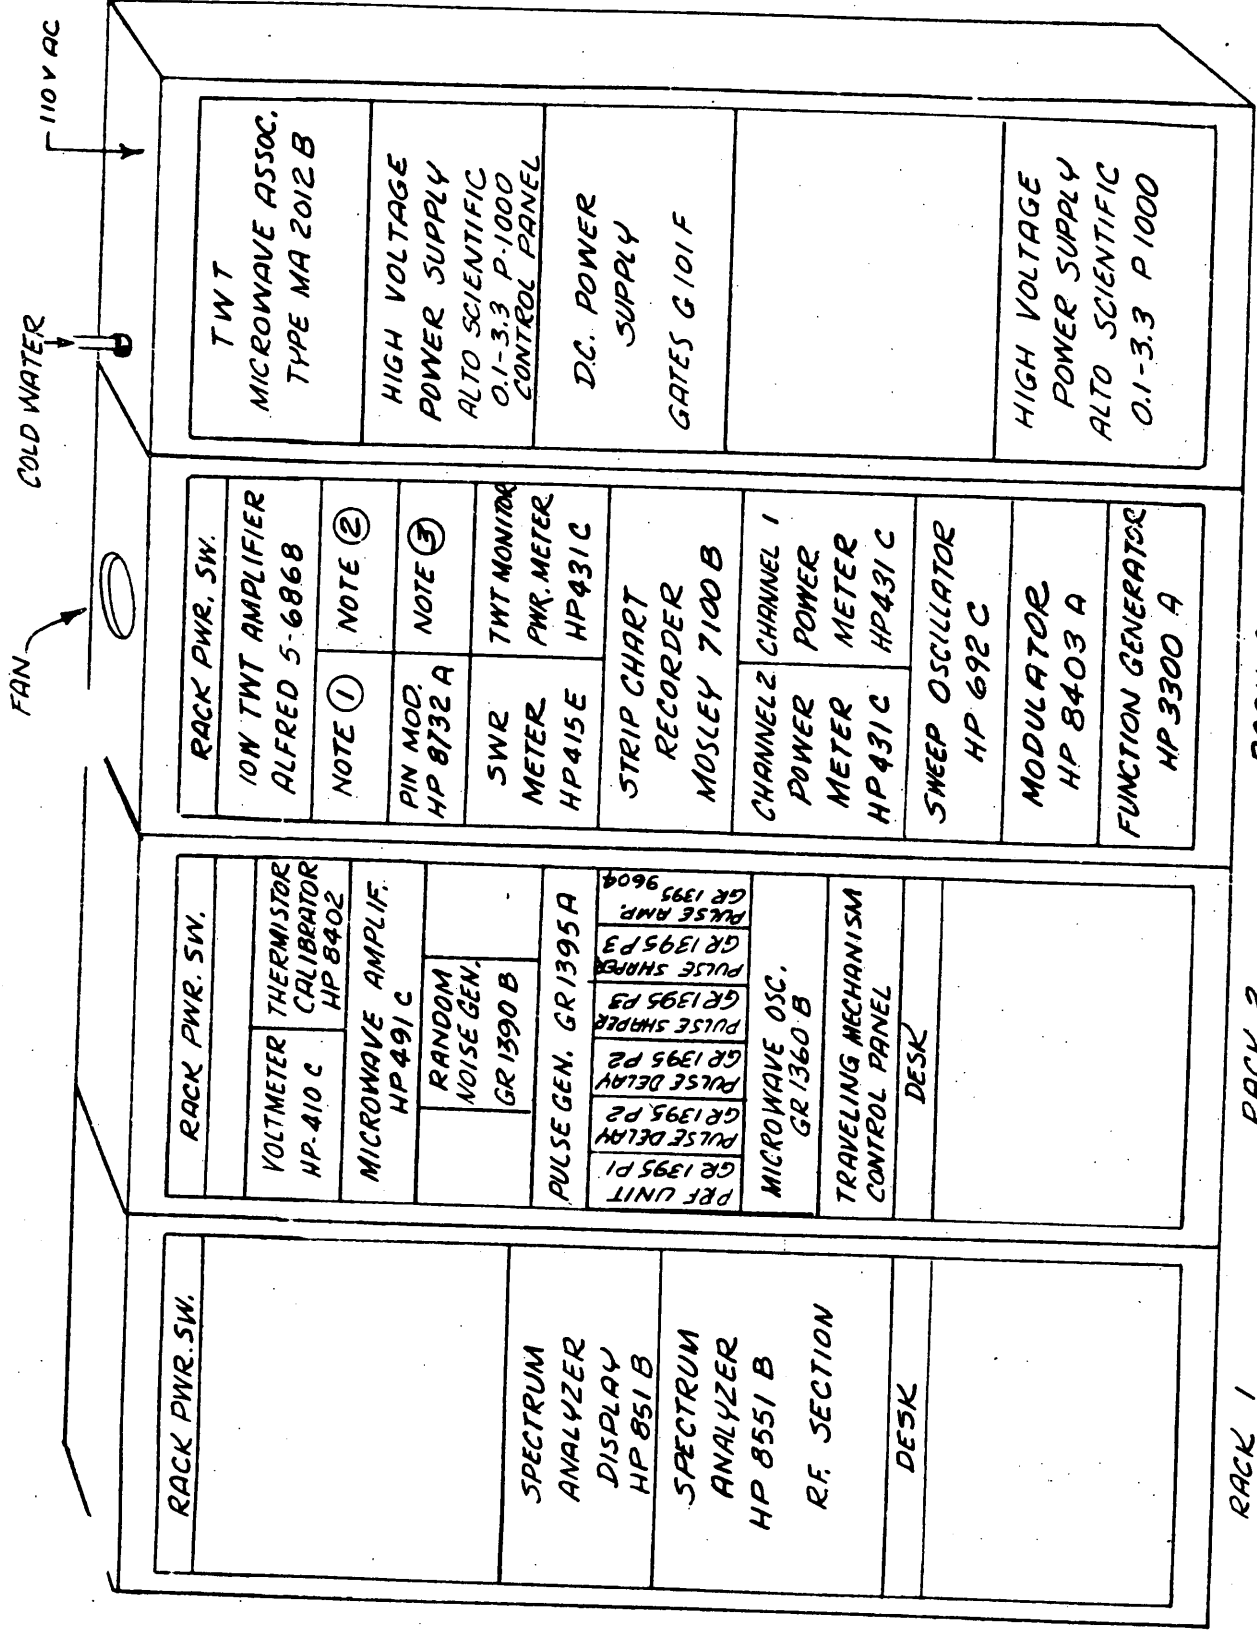 FAN
COLD WATER
110 V AC
RACK PWR. SW.
SPECTRUM
ANALYZER
DISPLAY
HP 851 B
SPECTRUM
ANALYZER
HP 8551 B
R.F. SECTION
DESK
RACK 1
RACK PWR. SW.
VOLTMETER
HP-410 C
THERMISTOR
CALIBRATOR
HP 8402
MICROWAVE AMPLIF.
HP 491 C
RANDOM
NOISE GEN.
GR 1390 B
PULSE GEN. GR 1395 A
PRF UNIT
GR 1395 P1
PULSE DELAY
GR 1395 P2
PULSE DELAY
GR 1395 P2
PULSE SHAPER
GR 1395 P3
PULSE SHAPER
GR 1395 P3
PULSE AMP.
GR 1395
9604
MICROWAVE OSC.
GR 1360 B
TRAVELING MECHANISM
CONTROL PANEL
DESK
RACK
RACK PWR. SW.
10W TWT AMPLIFIER
ALFRED 5-6868
NOTE 1
NOTE 2
PIN MOD.
HP 8732 A
NOTE 3
SWR
METER
HP 415 E
TWT MONITOR
PWR. METER
HP 431 C
STRIP CHART
RECORDER
MOSLEY 7100 B
CHANNEL 2
POWER
METER
HP 431 C
CHANNEL 1
POWER
METER
HP 431 C
SWEEP OSCILLATOR
HP 692 C
MODULATOR
HP 8403 A
FUNCTION GENERATOR
HP 3300 A
TWT
MICROWAVE ASSOC.
TYPE MA 2012 B
HIGH VOLTAGE
POWER SUPPLY
ALTO SCIENTIFIC
0.1-3.3 P-1000
CONTROL PANEL
D.C. POWER
SUPPLY
GATES G 101 F
HIGH VOLTAGE
POWER SUPPLY
ALTO SCIENTIFIC
0.1-3.3 P 1000